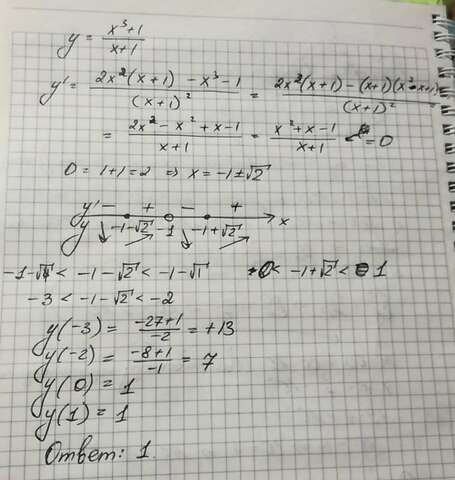 y = (x³+1)/(x+1)
y' = (2x²(x+1) - x³ - 1)/(x+1)² = (2x²(x+1) - (x+1)(x²-x+1))/(x+1)²
= (2x² - x² + x - 1)/(x+1) = (x² + x - 1)/(x+1) = 0
D = 1+1=2 ⇒ x = -1 ± √2
y' - + - +
y ↘ -1-√2 ↗ -1 ↘ -1+√2 ↗ x
-1-√4 < -1-√2 < -1-√1 0 < -1+√2 < 1
-3 < -1-√2 < -2
y(-3) = (-27+1)/(-2) = +13
y(-2) = (-8+1)/(-1) = 7
y(0) = 1
y(1) = 1
Ответ: 1.